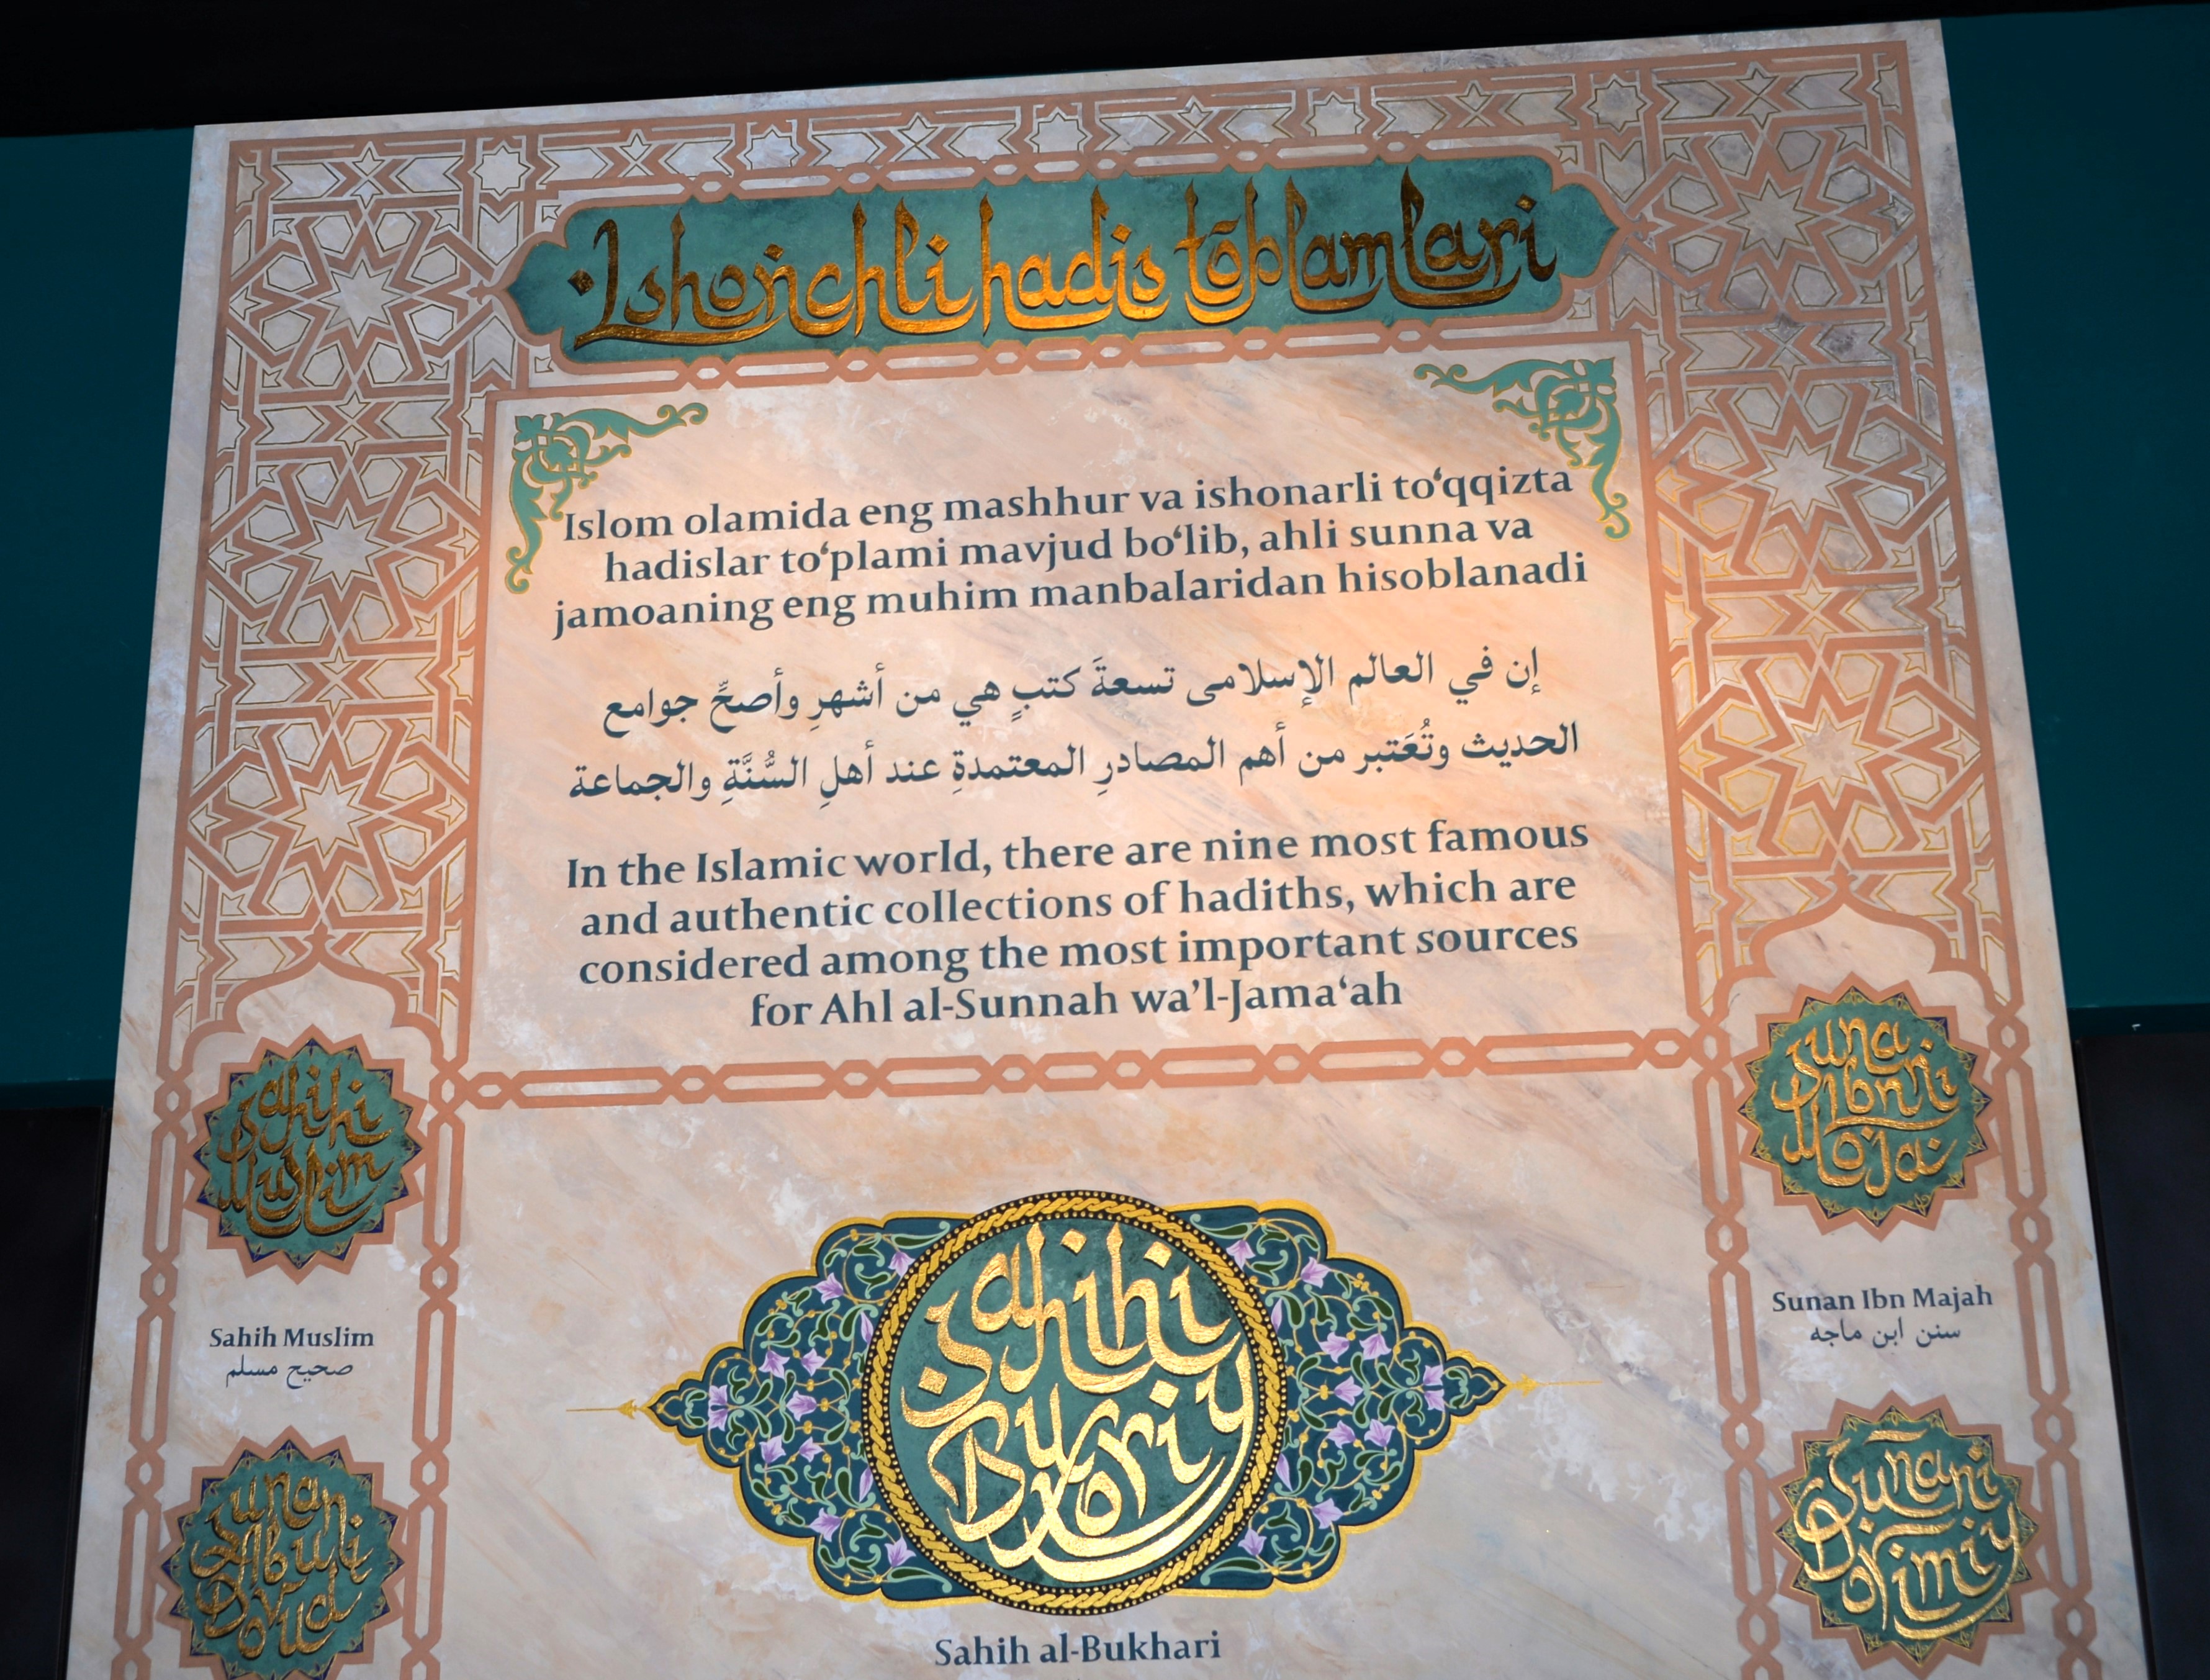 Ishonchli hadis tōblamlari
Islom olamida eng mashhur va ishonarli to‘qqizta
hadislar to‘plami mavjud bo‘lib, ahli sunna va
jamoaning eng muhim manbalaridan hisoblanadi
إن في العالم الإسلامى تسعةَ كتبٍ هي من أشهرِ وأصحِّ جوامع
الحديث وتُعَتبر من أهم المصادرِ المعتمدةِ عند أهلِ السُّنَّةِ والجماعة
In the Islamic world, there are nine most famous
and authentic collections of hadiths, which are
considered among the most important sources
for Ahl al-Sunnah wa’l-Jama‘ah
Sahihi
Muslim
Sahih Muslim
صحيح مسلم
Sunan
Abuli
Dovud
Sahihi
Buxoriy
Sahih al-Bukhari
Sunani
Ibn
Moja
Sunan Ibn Majah
سنن ابن ماجه
Sunani
Dorimiy